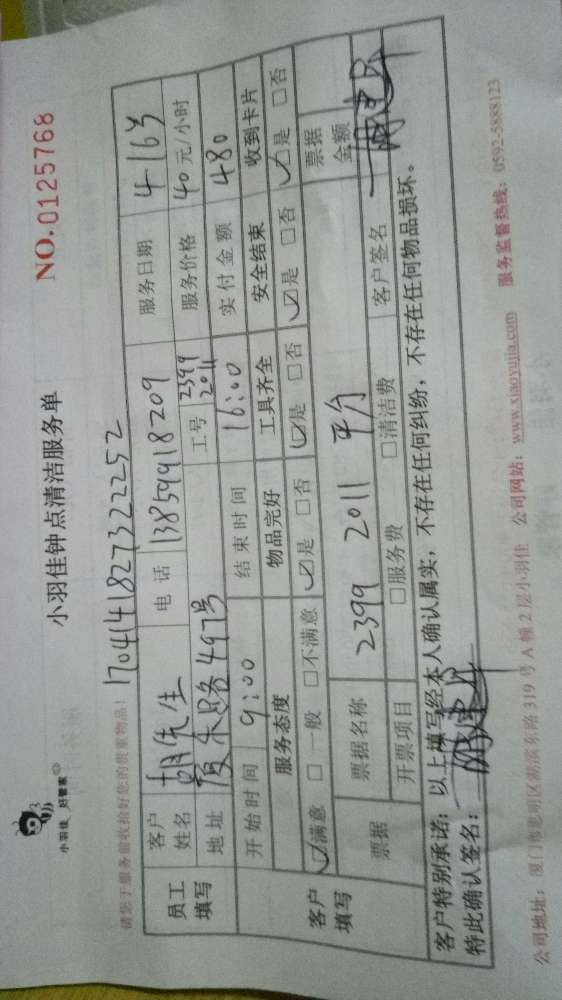 小羽佳 好管家
小羽佳钟点清洁服务单
NO.0125768
请您于服务前收拾好您的贵家物品!
17041418273222252
员工填写
客户姓名 胡先生 电话 13859918209 服务日期 4.16
地址 厦禾路497号 工号 2399 2011 服务价格 40元/小时
开始时间 9:00 结束时间 16:00 实付金额 480
客户填写
服务态度 物品完好 工具齐全 安全结束 收到卡片
☑满意 □一般 □不满意 ☑是 □否 ☑是 □否 ☑是 □否 ☑是 □否
票据 票据名称 2399 2011 平分 票据金额
开票项目 □服务费 □清洁费 客户签名
客户特别承诺:以上填写经本人确认属实,不存在任何纠纷,不存在任何物品损坏。
特此确认签名:
公司地址:厦门市思明区湖滨东路319号A幢2层小羽佳 公司网站:www.xiaoyujia.com 服务监督热线:0592-5888123